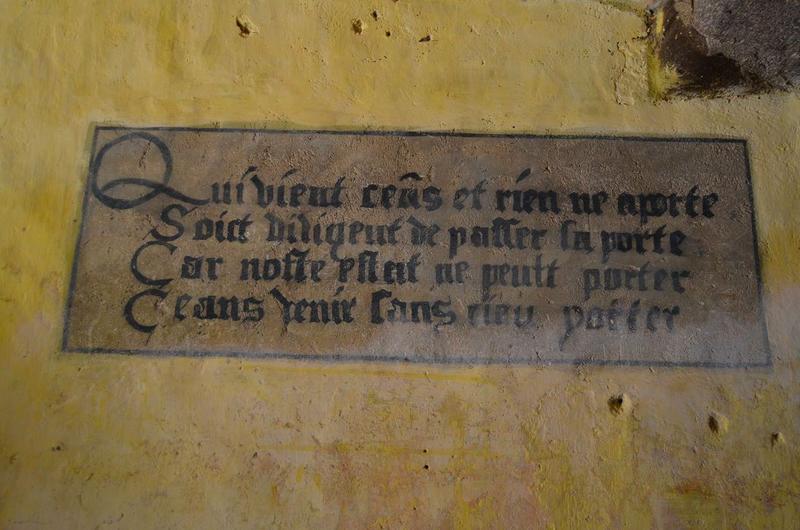 Qui vient ceãs et rien ne aporte
Soict diligent de passer la porte
Car nostre estat ne peult porter
Ceans venir sans rien porter